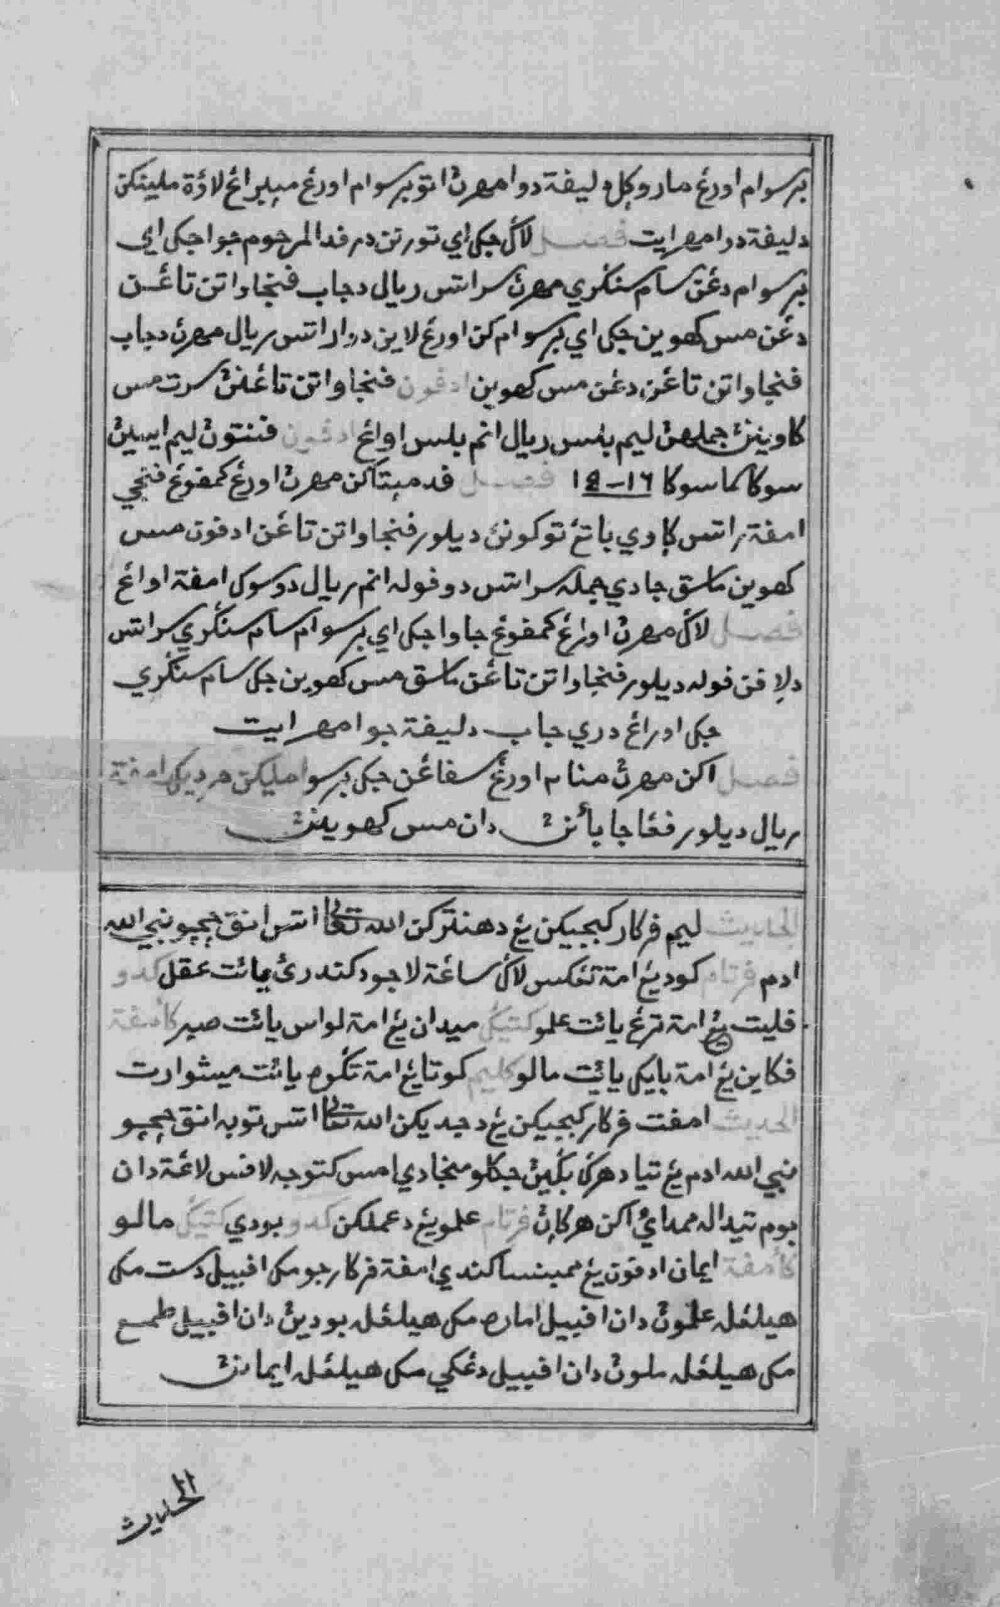 برسوام اورڠ مارو كل دليفة دوا مهرڽ اتو برسوام اورڠ مبلبراڠ لاؤة ملينكن
دليفة دوا مهرايت فصل لاݢ جكلي تورنن در فد المرحوم جوا جك اي
برسوام دڠن سام سنكري مهرڽ سراتس ريال دجاب فنجاواتن تاڠن
دڠن مس كهوين جك اي برسوام كن اورڠ لاين دوا راتس ريال مهرڽ دجاب
فنجاواتن تاڠن دڠن مس كهوين ادفون فنجاواتن تاڠنڽ سرت مس
كاوينڽ جملهڽ ليم بلس ريال انم بلس اواڠ ادفون فننتون ليم ايسيڽ
سوكا كما سوكا ١٦-١٤ فصل فد مپتاكن مهرڽ اورڠ كمفوڠ فنجي
امفة راتس كاوي باتڠ توكونڽ ديلور فنجاواتن تاڠن ادفون مس
كهوين ماسق جادي جمله سراتس دوفوله انم ريال دوسوك امفة اواڠ
فصل لاݢ مهرڽ اورڠ كمفوڠ جاوا جك اي برسوام سام سنكري سراتس
دلافن فوله ديلور فنجاواتن تاڠن ماسق مس كهوين جك سام سنكري
جك اورڠ دري جاب دليفة جوا مهرايت
فصل اكن مهرڽ منام اورڠ سفاڠن جك برسوا مليكن مرديك امفة
ريال ديلور فڠاجابأنڽ دان مس كهوينڽ
الحديث ليم فركار كبجيكن يڠ دهنتركن الله تعالى اتس انق چوچو نبي الله
ادم فرتام كود يڠ امة تڠكس لاݢ ساڠة لاجو دكندرئ يائت عقل كدو
فليت يڠ امة ترڠ يائت علمو كتيݢ ميدان يڠ امة لواس يائت صبر كأمفة
فكاين يڠ امة بايك يائت مالو كليم كوتا يڠ امة تݢوه يائت ميثوارت
الحديث امفت فركار كبجيكن يڠ دجديكن الله تعالى اتس توبه انق چوچو
نبي الله ادم يڠ تياد هرݢ بݢين جكالو منجادي امس كتوجه لافس لاڠة دان
بوم تيداله ممداي اكن هرݢاڽ فرتام علمو يڠ دعملكن كدو بودي كتيݢ مالو
كأمفة ايمان ادفون يڠ ممبنساكندي امفة فركار جو مك افبيل دست مك
هيلڠله علموڽ دان افبيل اماره مك هيلڠله بوديڽ دان افبيل طمع
مك هيلڠله مالوڽ دان افبيل دڠكي مك هيلڠله ايمانڽ
الحديث